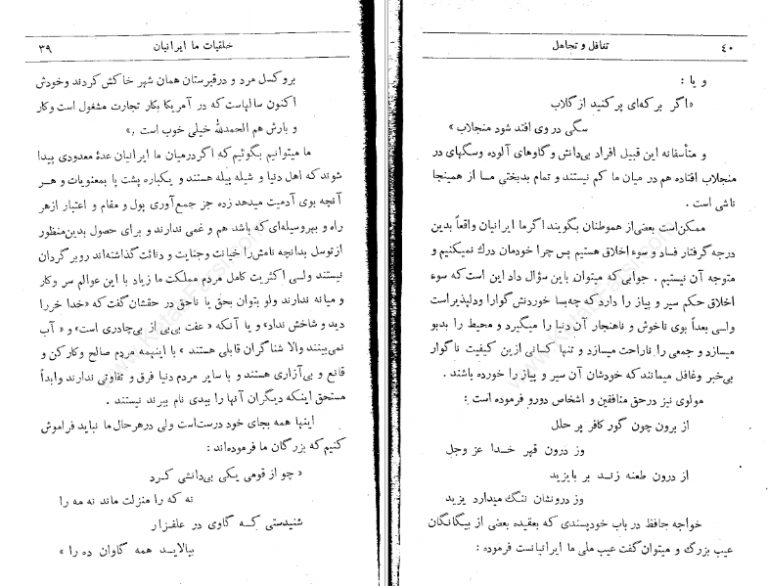 ۳۹ خلقیات ما ایرانیان
بروکسل مرد و در قبرستان همان شهر خاکش کردند وخودش
اکنون سالهاست که در آمریکا بکار تجارت مشغول است وکار
و بارش هم الحمدلله خیلی خوب است .»
ما میتوانیم بگوئیم که اگر درمیان ما ایرانیان عدهٔ معدودی پیدا
شوند که اهل دنیا و شیله پیله هستند و یکباره پشت پا بمعنویات و هر
آنچه بوی آدمیت میدهد زده جز جمع‌آوری پول و مقام و اعتبار ازهر
راه و بهروسیله‌ای که باشد هم و غمی ندارند و برای حصول بدین‌منظور
از توسل بدانچه نامش را خیانت وجنایت و دنائت گذاشته‌اند روبر گردان
نیستند ولی اکثریت کامل مردم مملکت ما زیاد با این عوالم سر وکار
و میانه ندارند ولو بتوان بحق یا ناحق در حقشان گفت که «خدا خر را
دید و شاخش نداد» و یا آنکه « عفت بی‌بی از بی‌چادری است» و « آب
نمی‌بینند والا شناگران قابلی هستند » با اینهمه مردم صالح وکارکن و
قانع و بی‌آزاری هستند و با سایر مردم دنیا فرق و تفاوتی ندارند وابداً
مستحق اینکه دیگران آنها را ببدی نام ببرند نیستند .
اینها همه بجای خود درست‌است ولی درهرحال ما نباید فراموش
کنیم که بزرگان ما فرموده‌اند :
« چو از قومی یکی بی‌دانشی کرد
نه که را منزلت ماند نه مه را
شنیدستی که گاوی در علفزار
بیالاید همه گاوان ده را »
تغافل و تجاهل ٤٠
و یا :
«اگر برکه‌ای پر کنید از گلاب
سگی در وی افتد شود منجلاب »
و متأسفانه این قبیل افراد بی‌دانش و گاوهای آلوده وسگهای در
منجلاب افتاده هم در میان ما کم نیستند و تمام بدبختی ما از همینجا
ناشی است .
ممکن‌است بعضی از هموطنان بگویند اگر ما ایرانیان واقعاً بدین
درجه گرفتار فساد و سوء اخلاق هستیم پس چرا خودمان درك نمیکنیم و
متوجه آن نیستیم . جوابی که میتوان باین سؤال داد این است که سوء
اخلاق حکم سیر و پیاز را دارد که چه‌بسا خوردنش گوارا ودلپذیراست
ولی بعداً بوی ناخوش و ناهنجار آن دنیا را میگیرد و محیط را بدبو
میسازد و جمعی را ناراحت میسازد و تنها کسانی از این کیفیت ناگوار
بی‌خبر وغافل میمانند که خودشان آن سیر و پیاز را خورده باشند .
مولوی نیز درحق منافقین و اشخاص دورو فرموده است :
از برون چون گور کافر پر حلل
وز درون قهر خدا عز وجل
از درون طعنه زند بر بایزید
وز درونشان ننگ میدارد یزید
خواجه حافظ در باب خودپسندی که بعقیده بعضی از بیگانگان
عیب بزرگ و میتوان گفت عیب ملی ما ایرانیانست فرموده :